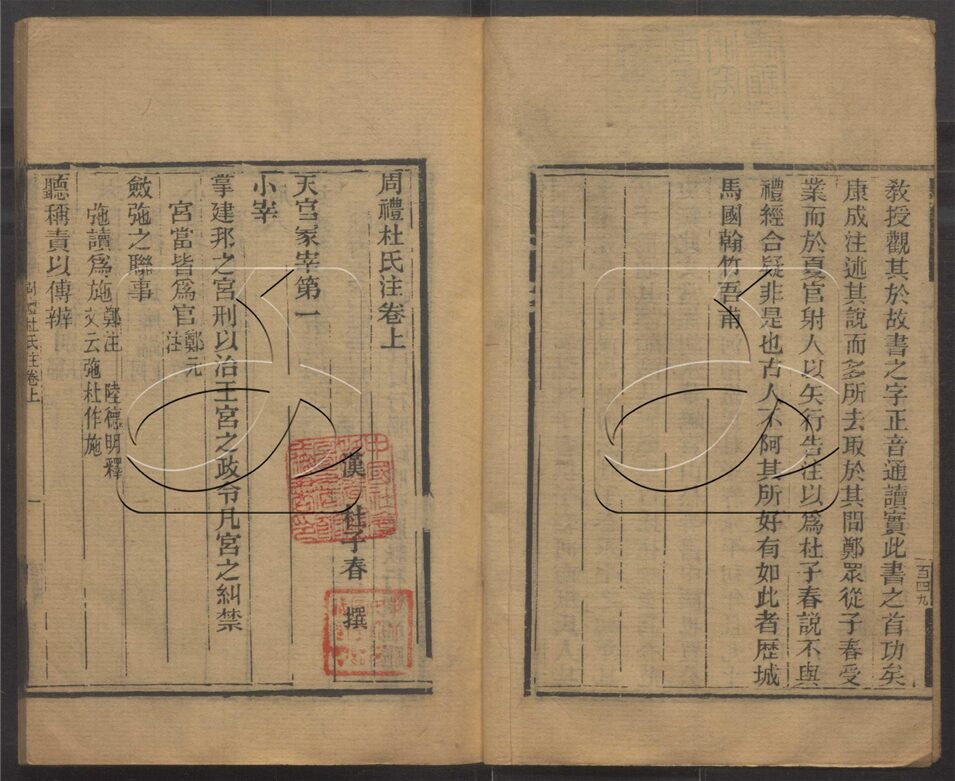 敎授觀其於故書之字正音通讀實此書之首功矣
康成注述其說而多所去取於其間鄭眾從子春受
業而於夏官射人以矢行告注以爲杜子春說不與
禮經合疑非是也古人不阿其所好有如此者歷城
馬國翰竹吾甫
百四九
周禮杜氏注卷上
漢 杜子春 撰
天官冢宰第一
小宰
掌建邦之宮刑以治王宮之政令凡宮之糾禁
宮當皆爲官鄭元注
斂弛之聯事
弛讀爲施鄭注 陸德明釋文云弛杜作施
聽稱責以傅辨
周禮杜氏注卷上
一